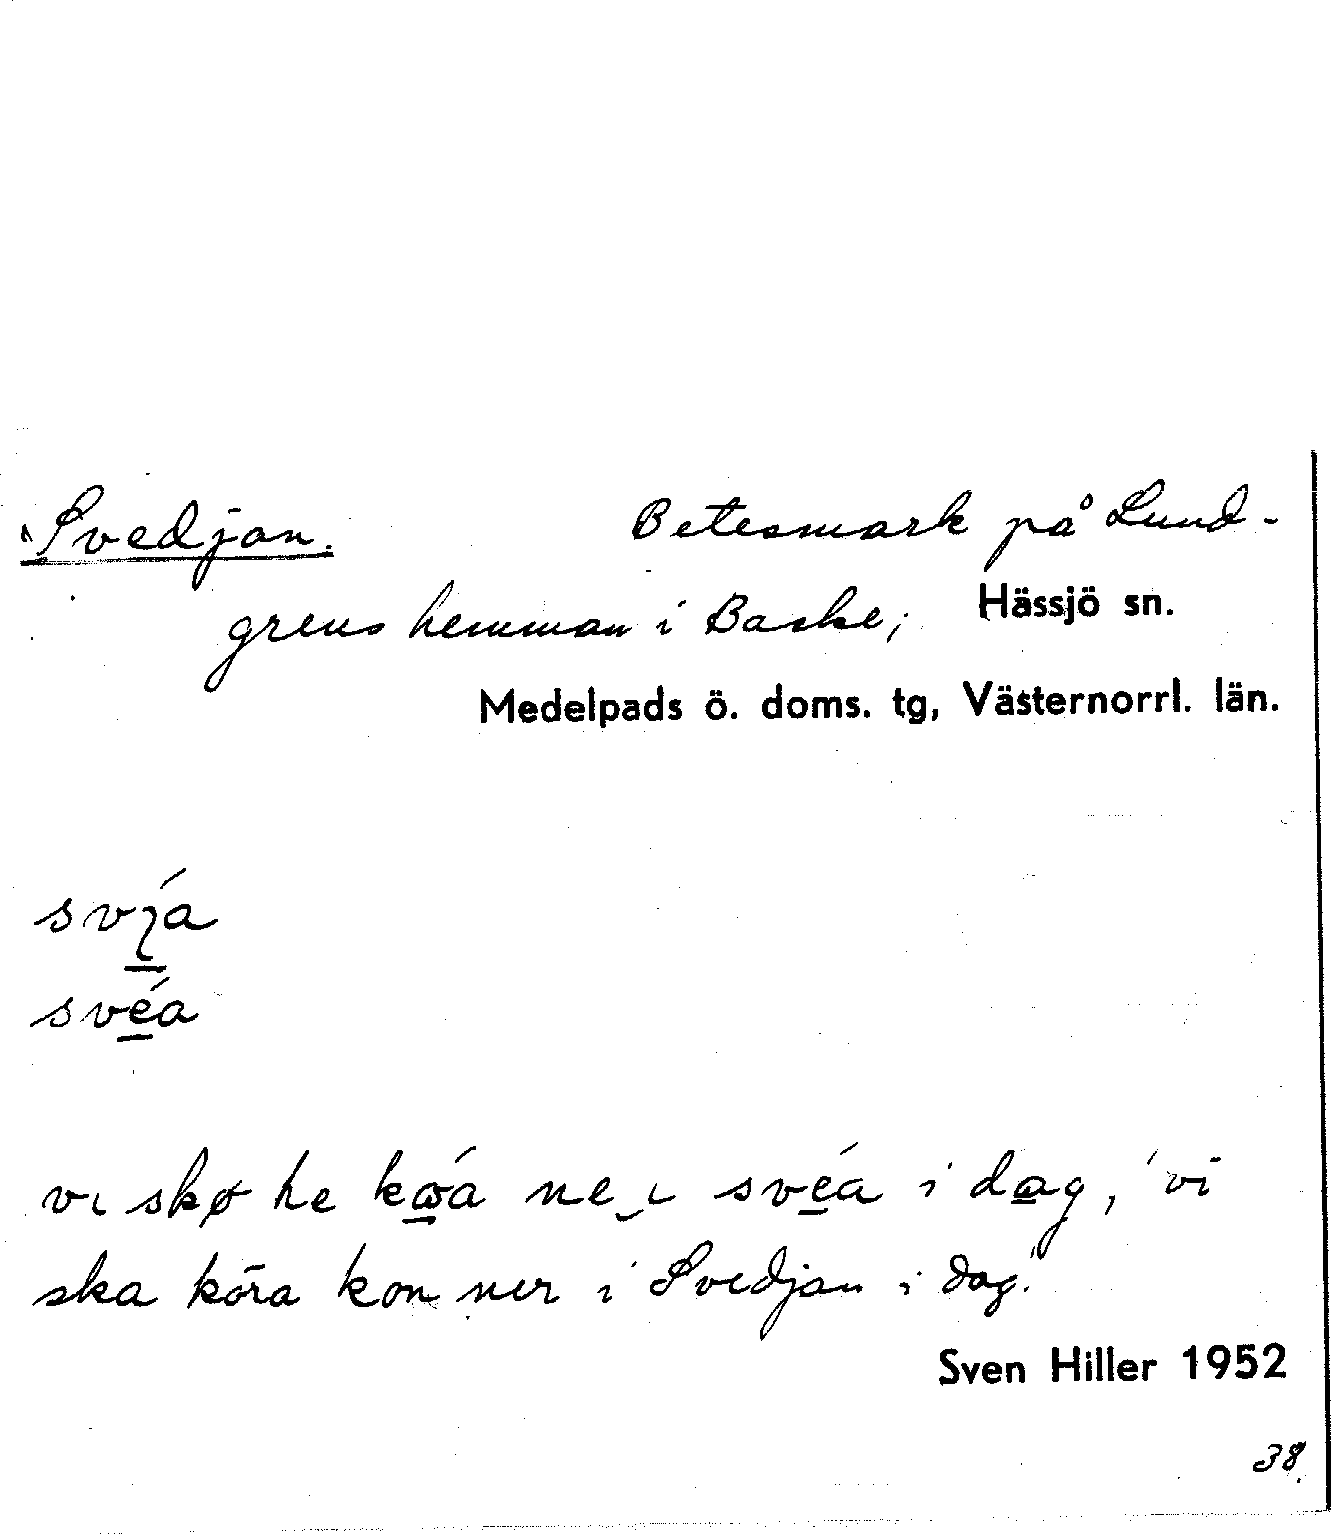 Svedjan. Betesmark på Lund-
grens hemman i Baske; Hässjö sn.
Medelpads ö. doms. tg, Västernorrl. län.
svéa
vι skø he ne‿ι svéa i dag, 'vi
ska köra kon ner i Svedjan i dag.'
Sven Hiller 1952
38.